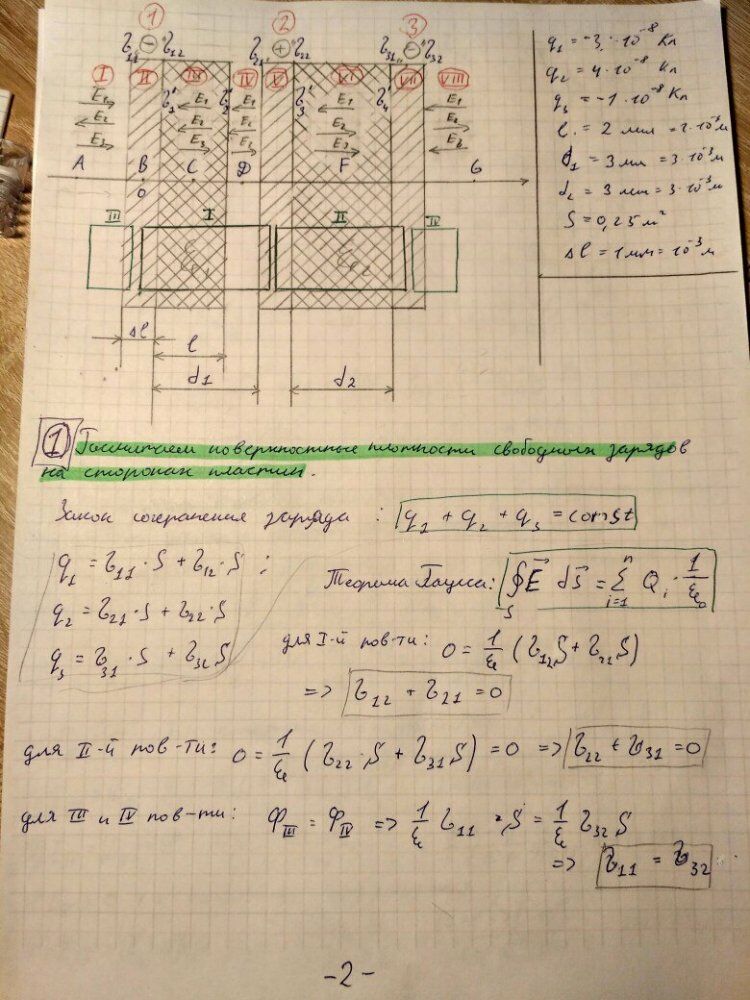 1 2 3
τ11 ⊖ τ12 τ21 ⊕ τ22 τ31 ⊖ τ32
I II III IV V VI VII VIII
τ'1 τ'2 τ'3 τ'4
E1 E1 E1 E1 E1
E2 E2 E2 E2 E2
E3 E3 E3 E3 E3
A B C D F G
O
III I II IV
Δl
l
d1 d2
q1 = -3 · 10⁻⁸ Кл
q2 = 4 · 10⁻⁸ Кл
q3 = -1 · 10⁻⁸ Кл
l = 2 мм = 2 · 10⁻³ м
d1 = 3 мм = 3 · 10⁻³ м
d2 = 3 мм = 3 · 10⁻³ м
S = 0,25 м²
Δl = 1 мм = 10⁻³ м
1 Посчитаем поверхностные плотности свободных зарядов
на сторонах пластин.
Закон сохранения заряда : q1 + q2 + q3 = const
q1 = τ11 · S + τ12 · S ;
q2 = τ21 · S + τ22 · S
q3 = τ31 · S + τ32 S
Теорема Гаусса: ∮S E⃗ dS⃗ = Σ(i=1, n) Qi · 1/εε0
для I-й пов-ти: 0 = 1/ε (τ12 S + τ21 S)
=> τ12 + τ21 = 0
для II-й пов-ти: 0 = 1/ε (τ22 · S + τ31 S) = 0 => τ22 + τ31 = 0
для III и IV пов-ти: ФIII = ФIV => 1/ε τ11 · S = 1/ε τ32 S
=> τ11 = τ32
-2-